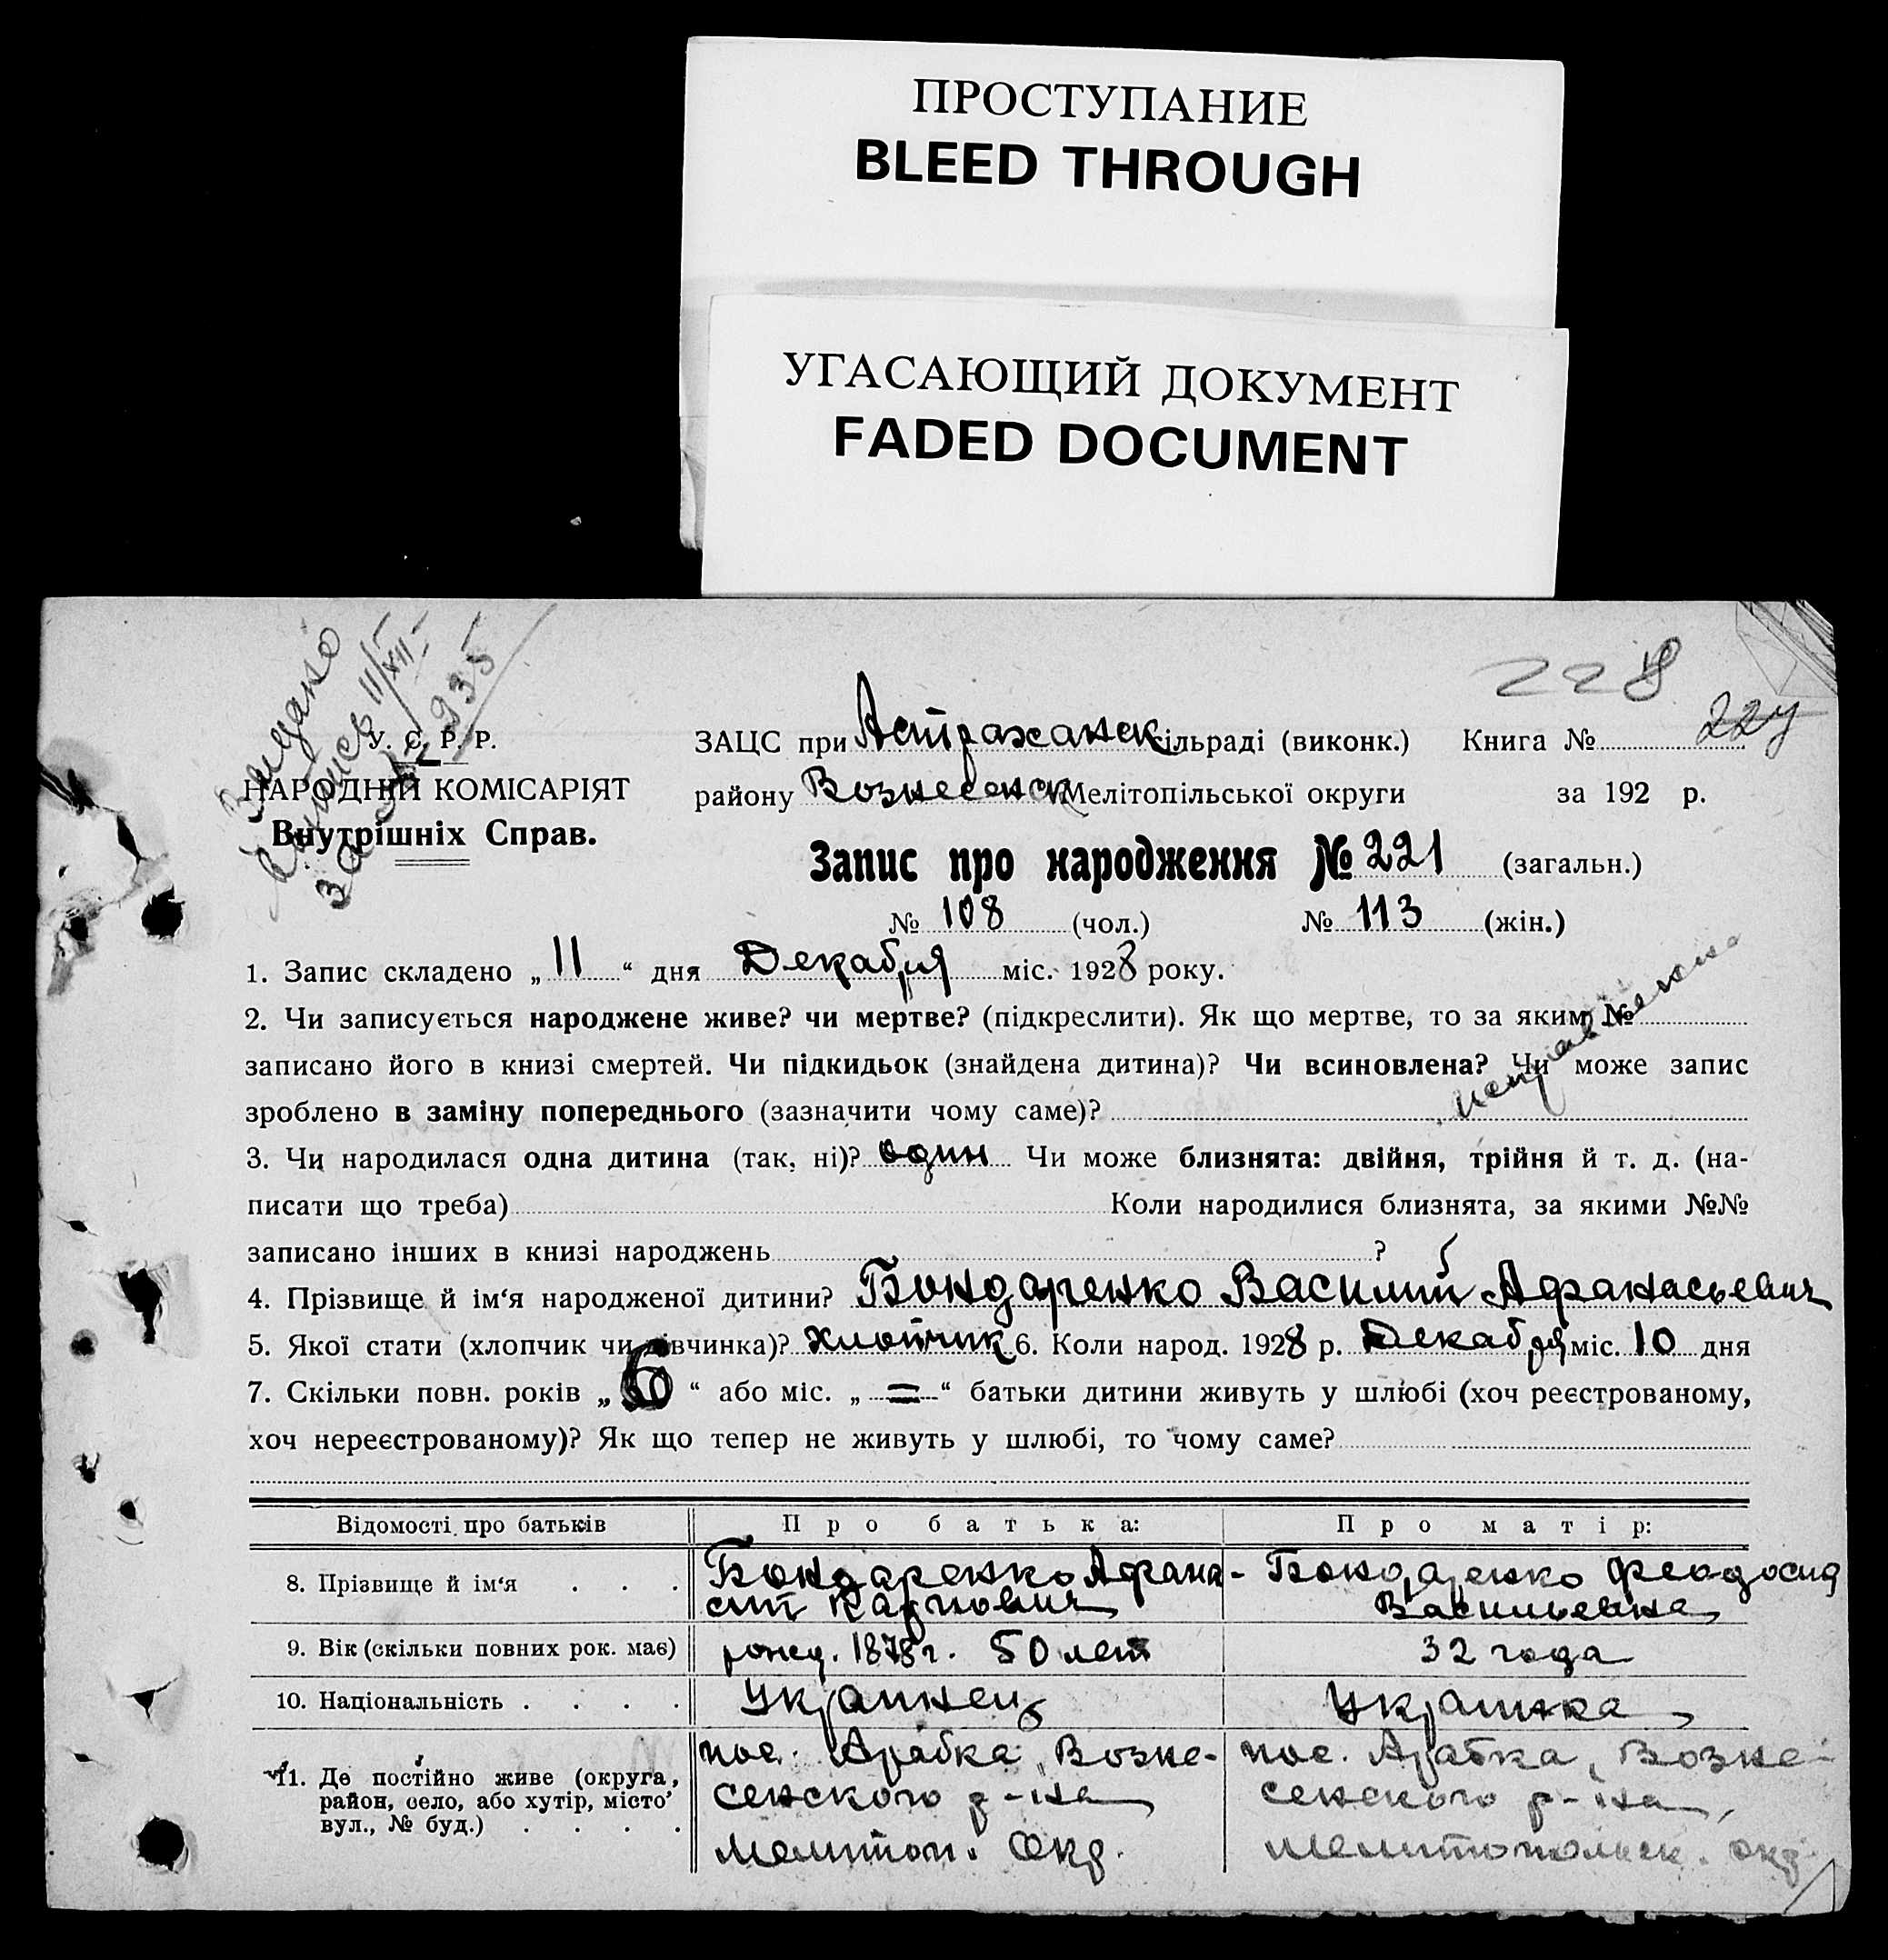 ПРОСТУПАНИЕ
BLEED THROUGH
УГАСАЮЩИЙ ДОКУМЕНТ
FADED DOCUMENT
228
227
11/XII
935
У. С. Р. Р.
НАРОДНІЙ КОМІСАРІЯТ
Внутрішніх Справ.
ЗАЦС при Астраханск сільраді (виконк.) Книга №
району Вознесенск Мелітопільської округи за 192 р.
Запис про народження № 221 (загальн.)
№ 108 (чол.) № 113 (жін.)
1. Запис складено „ 11 “ дня Декабря міс. 1928 року.
2. Чи записується народжене живе? чи мертве? (підкреслити). Як що мертве, то за яким №
записано його в книзі смертей. Чи підкидьок (знайдена дитина)? Чи всиновлена? Чи може запис
зроблено в заміну попереднього (зазначити чому саме)?
3. Чи народилася одна дитина (так, ні)? один Чи може близнята: двійня, трійня й т. д. (на-
писати що треба) Коли народилися близнята, за якими №№
записано інших в книзі народжень ?
4. Прізвище й ім‘я народженої дитини? Бондаренко Василий Афанасьевич
5. Якої стати (хлопчик чи дівчинка)? хлопчик 6. Коли народ. 1928 р. Декабря міс. 10 дня
7. Скільки повн. років „ 6 “ або міс. „ = “ батьки дитини живуть у шлюбі (хоч реєстрованому,
хоч нереєстрованому)? Як що тепер не живуть у шлюбі, то чому саме?
Відомості про батьків Про батька: Про матір:
8. Прізвище й ім‘я . . . Бондаренко Афана- Бондаренко Феодосия
сий Карпович Васильевна
9. Вік (скільки повних рок. має) рожд. 1878 г. 50 лет 32 года
10. Національність . . . . Украинец Украинка
11. Де постійно живе (округа, район, село, або хутір, місто, вул., № буд.) . . . .
пос. Арабка, Возне- пос. Арабка, Возне-
сенского р-на сенского р-на,
Мелитоп. Окр. Мелитопольск. окр.